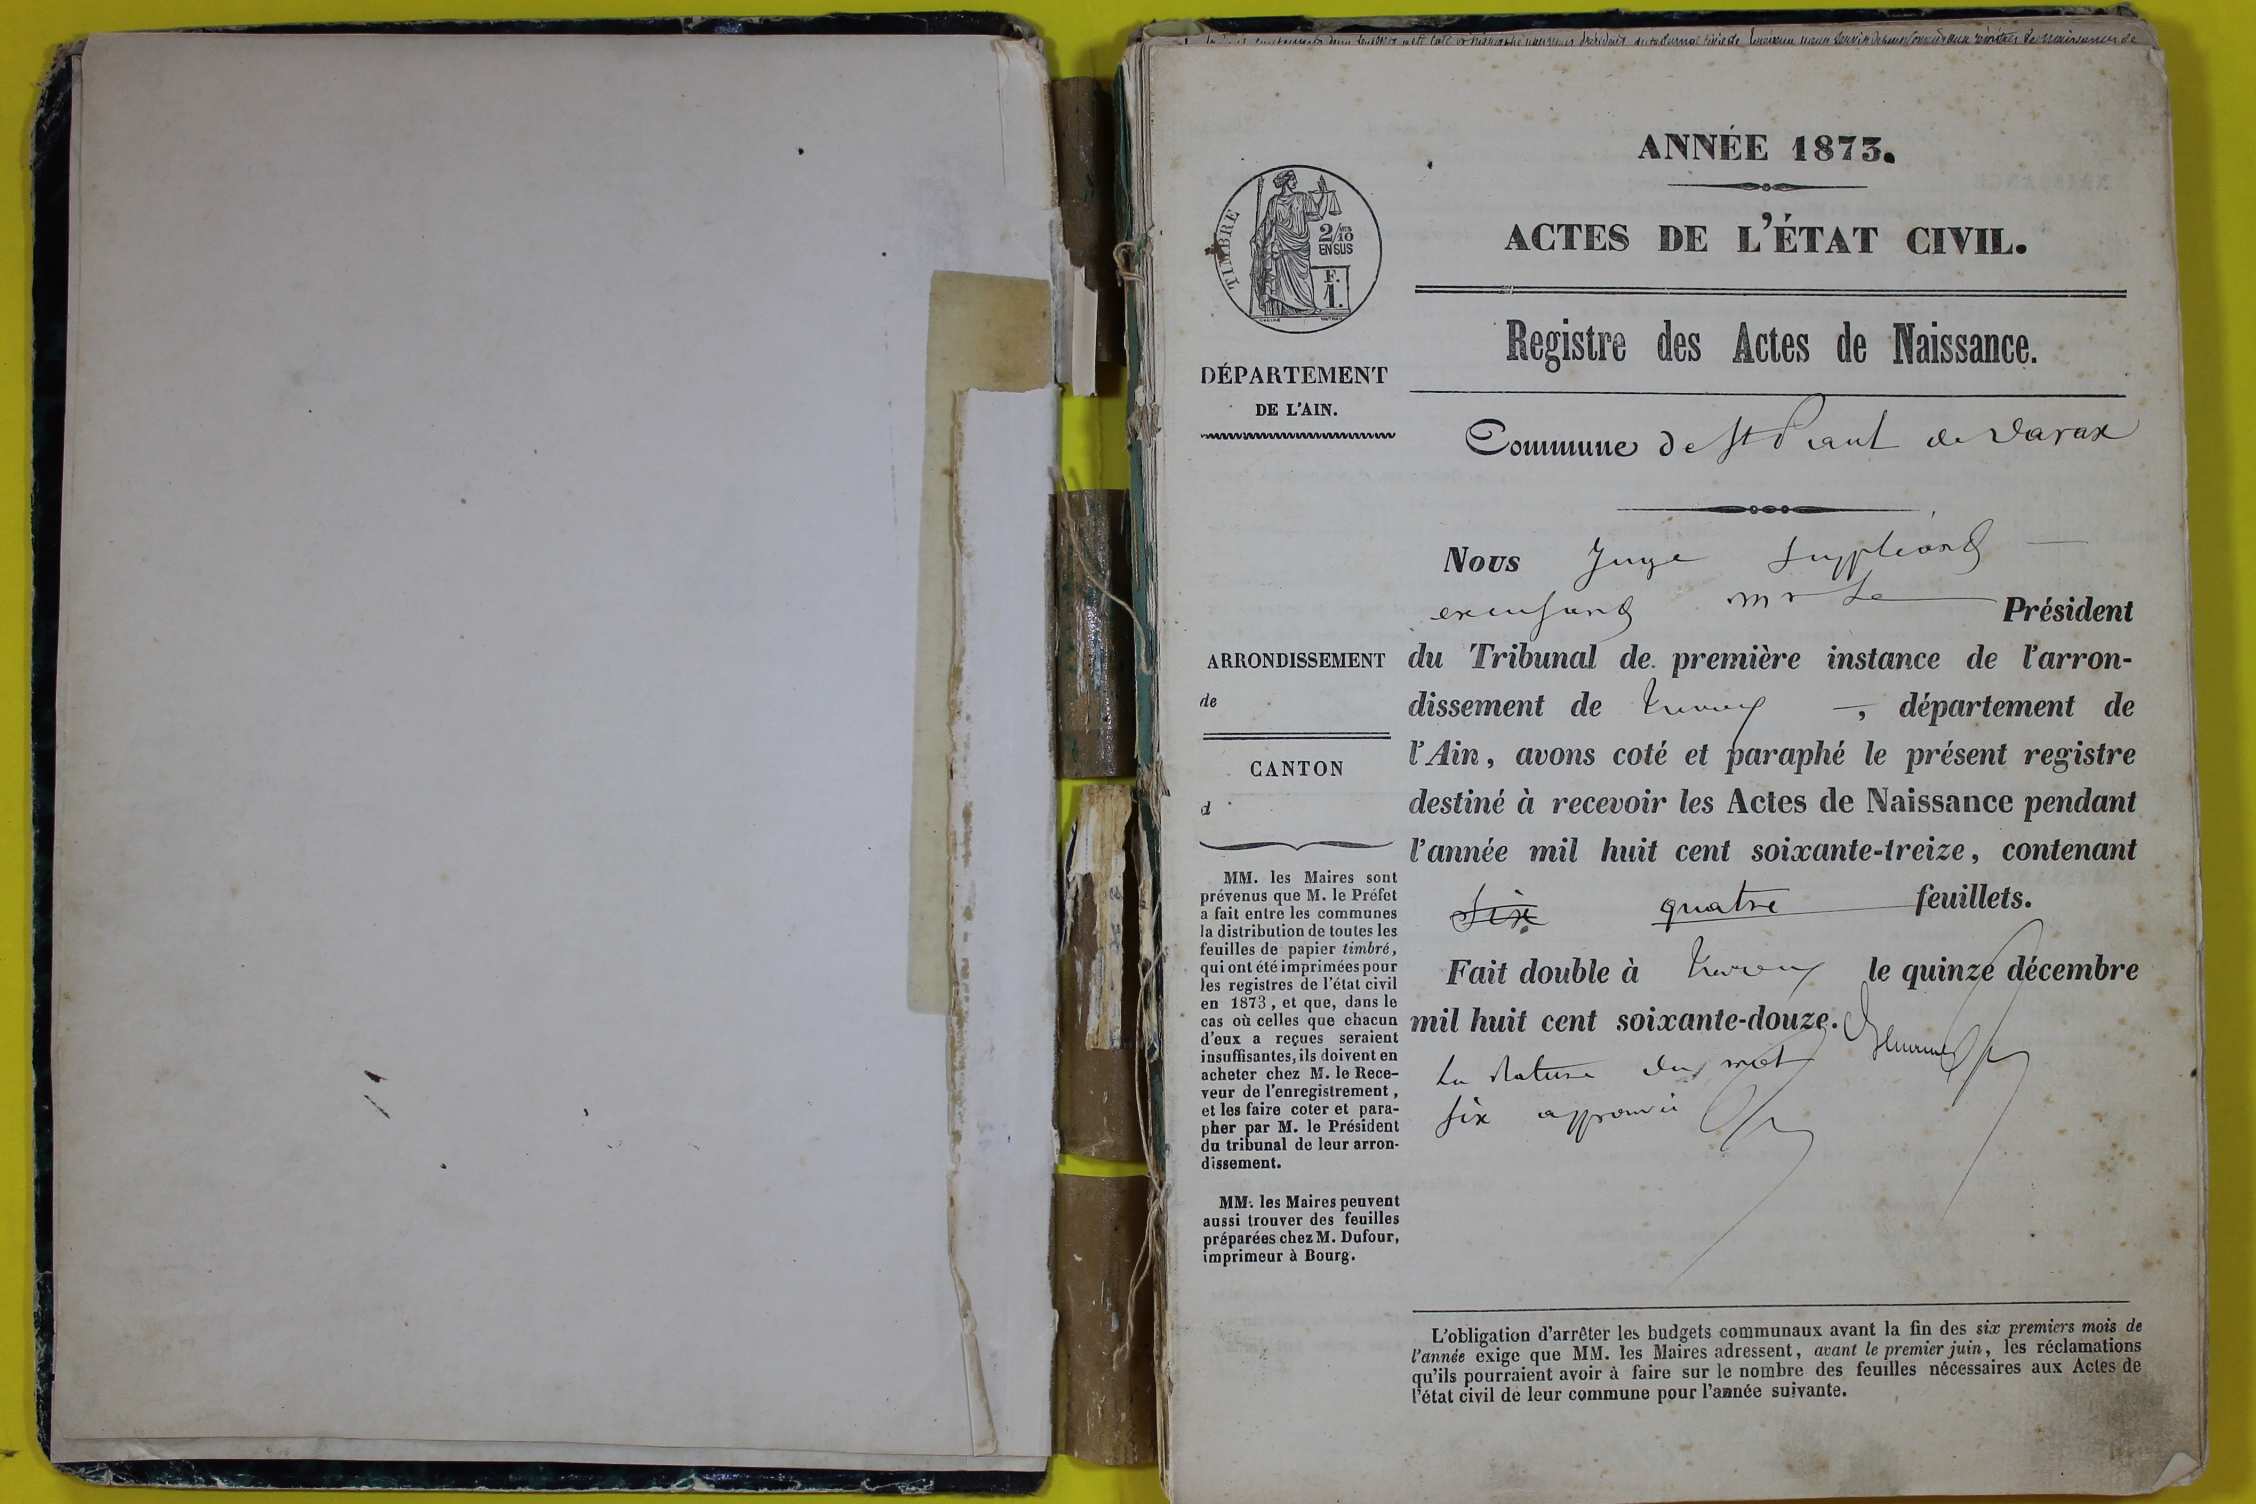 ANNÉE 1873.
ACTES DE L'ÉTAT CIVIL.
Registre des Actes de Naissance.
Commune de St Paul de Varax
TIMBRE
2/10
EN SUS
F.
1.
DÉPARTEMENT
DE L'AIN.
ARRONDISSEMENT
de
CANTON
d
MM. les Maires sont
prévenus que M. le Préfet
a fait entre les communes
la distribution de toutes les
feuilles de papier timbré,
qui ont été imprimées pour
les registres de l'état civil
en 1873, et que, dans le
cas où celles que chacun
d'eux a reçues seraient
insuffisantes, ils doivent en
acheter chez M. le Rece-
veur de l'enregistrement,
et les faire coter et para-
pher par M. le Président
du tribunal de leur arron-
dissement.
MM. les Maires peuvent
aussi trouver des feuilles
préparées chez M. Dufour,
imprimeur à Bourg.
Nous Juge suppléant
Mr le Président
du Tribunal de première instance de l'arron-
dissement de Trévoux, département de
l'Ain, avons coté et paraphé le présent registre
destiné à recevoir les Actes de Naissance pendant
l'année mil huit cent soixante-treize, contenant
six quatre feuillets.
Fait double à Trévoux le quinze décembre
mil huit cent soixante-douze.
La rature du mot
six approuvée
L'obligation d'arrêter les budgets communaux avant la fin des six premiers mois de
l'année exige que MM. les Maires adressent, avant le premier juin, les réclamations
qu'ils pourraient avoir à faire sur le nombre des feuilles nécessaires aux Actes de
l'état civil de leur commune pour l'année suivante.